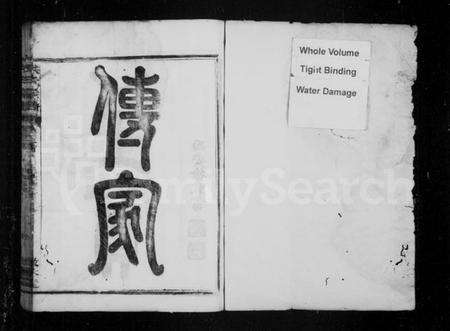 傳
家
Whole Volume
Tight Binding
Water Damage
FamilySearch